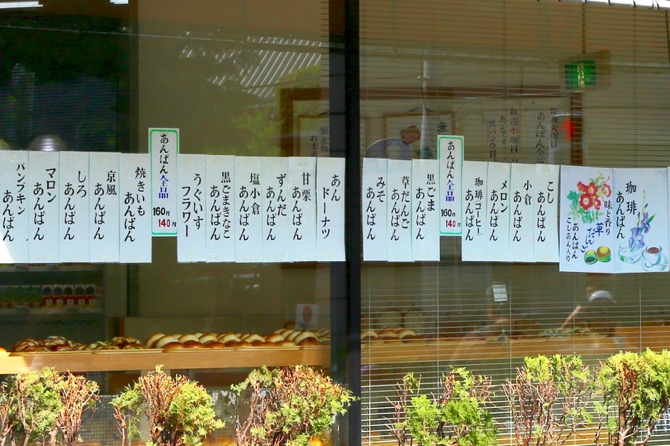 珈琲
あんぱん
味と香り
草だんご
あんぱん
こしあん入り
こし
あんぱん
小倉
あんぱん
メロン
あんぱん
珈琲コーヒー
あんぱん
あんぱん全品
160円
140円
黒ごま
あんぱん
草だんご
あんぱん
みそ
あんぱん
あん
ドーナツ
甘栗
あんぱん
ずんだ
あんぱん
塩小倉
あんぱん
黒ごまきなこ
あんぱん
うぐいす
フラワー
あんぱん全品
160円
140円
焼きいも
あんぱん
京風
あんぱん
しろ
あんぱん
マロン
あんぱん
パンプキン
あんぱん